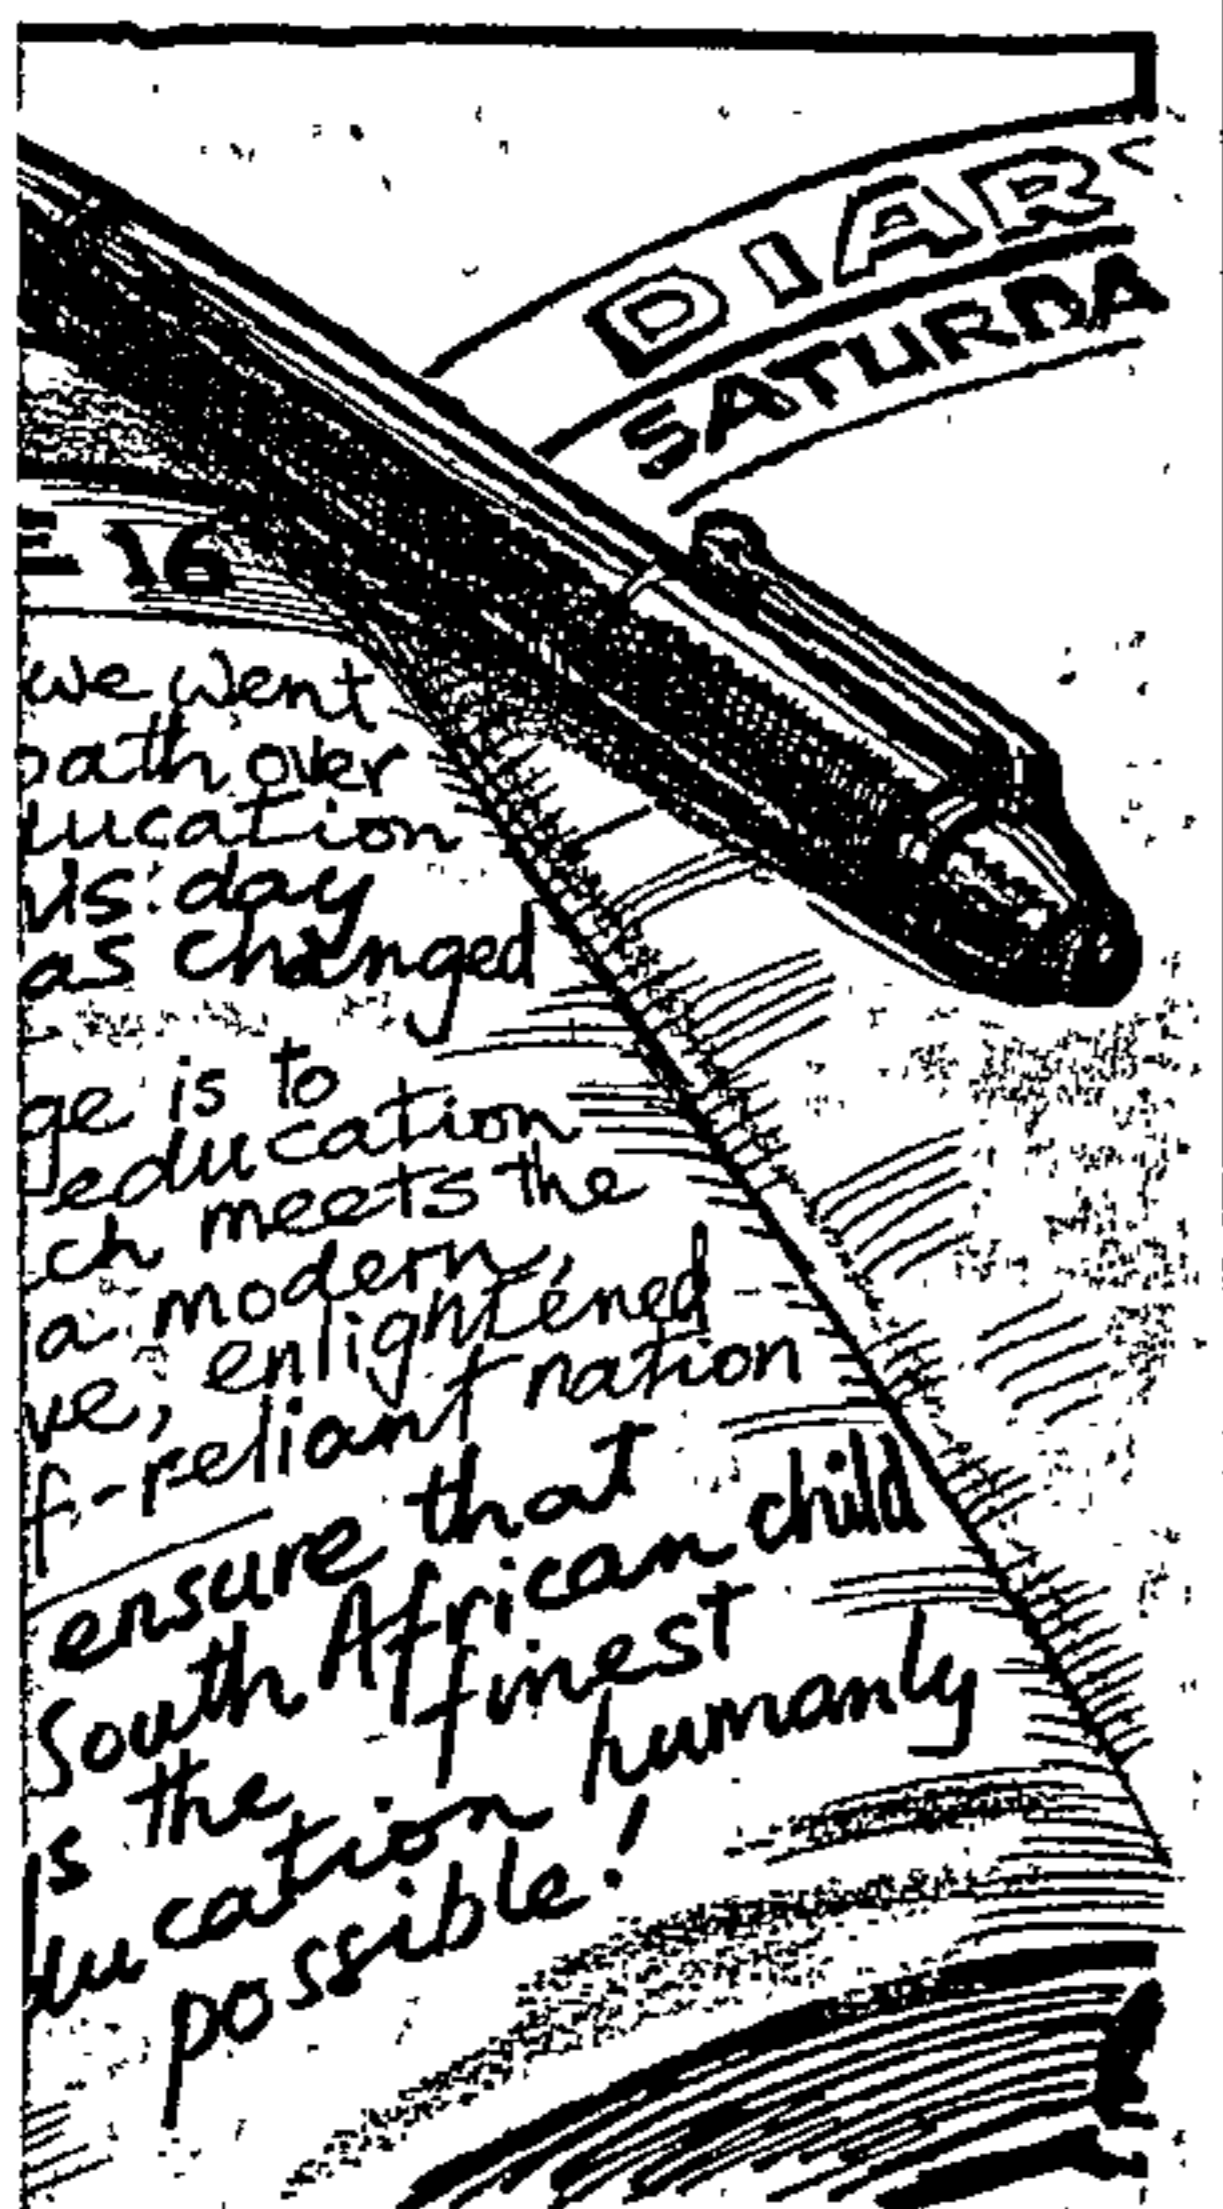 DIAR
SATURDA
E 16
we went
path over
ducation
his day
as changed
ge is to
education
ch meets the
a modern,
ve, enlightened
f-reliant nation
ensure that
South African child
s the finest
ducation humanly
possible!